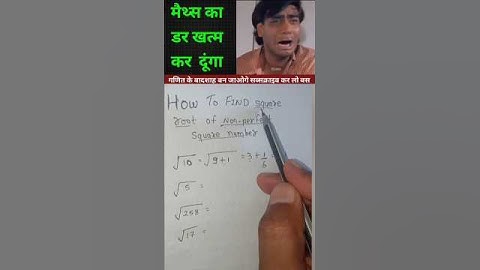 मैथ्स का
डर खत्म
कर दूंगा
गणित के बादशाह बन जाओगे सब्सक्राइब कर लो बस
HOW TO FIND square
root of Non-perfect
Square number
√10 = √9+1 = 3 + 1/6 =
√5 =
√258 =
√17 =